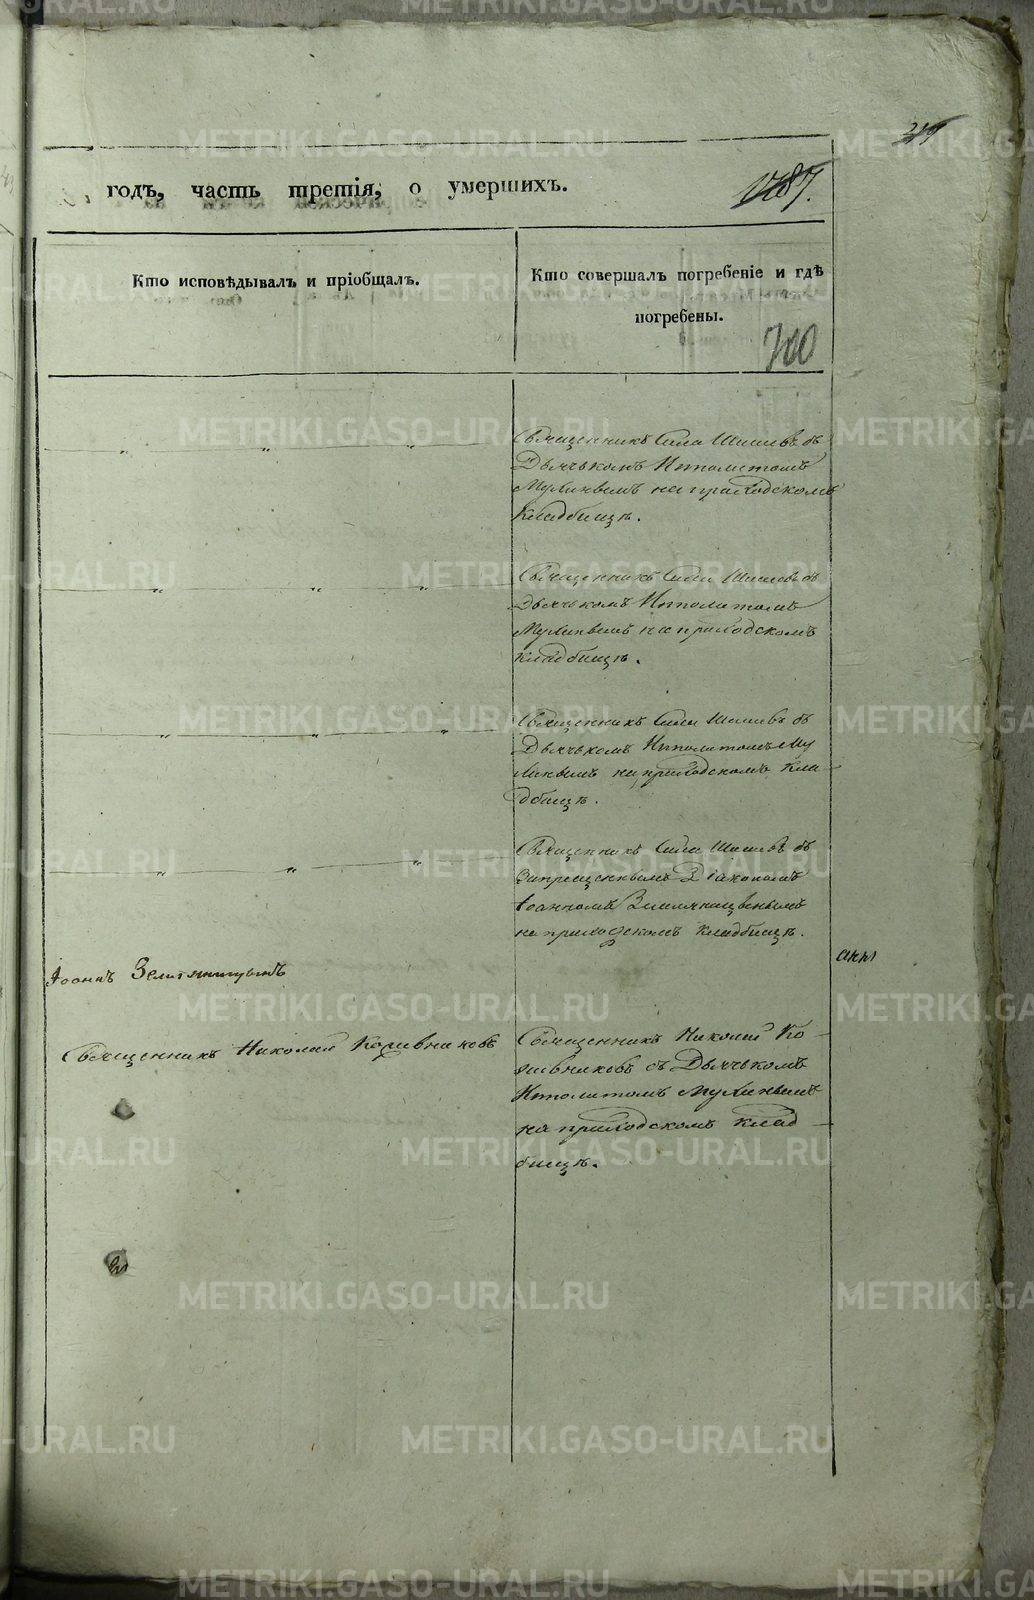 годъ, часть третія, о умершихъ.
1787.
Кто исповѣдывалъ и пріобщалъ.
Кто совершалъ погребеніе и гдѣ
погребены.
700
Священникъ Сила Шишевъ съ
Дьячькомъ Ипполитомъ
Мулинымъ на приходскомъ
кладбищѣ.
Священникъ Сила Шишевъ съ
Дьячькомъ Ипполитомъ
Мулинымъ на приходскомъ
кладбищѣ.
Священникъ Сила Шишевъ съ
Дьячькомъ Ипполитомъ Му
линымъ на приходскомъ кла-
дбищѣ.
Священникъ Сила Шишевъ съ
Запрещеннымъ Діакономъ
Іоанномъ
на приходскомъ кладбищѣ.
Іоаннъ
Священникъ Николай
Священникъ Николай Ко-
съ Дьячькомъ
Ипполитомъ Мулинымъ
на приходскомъ клад-
бищѣ.
METRIKI.GASO-URAL.RU